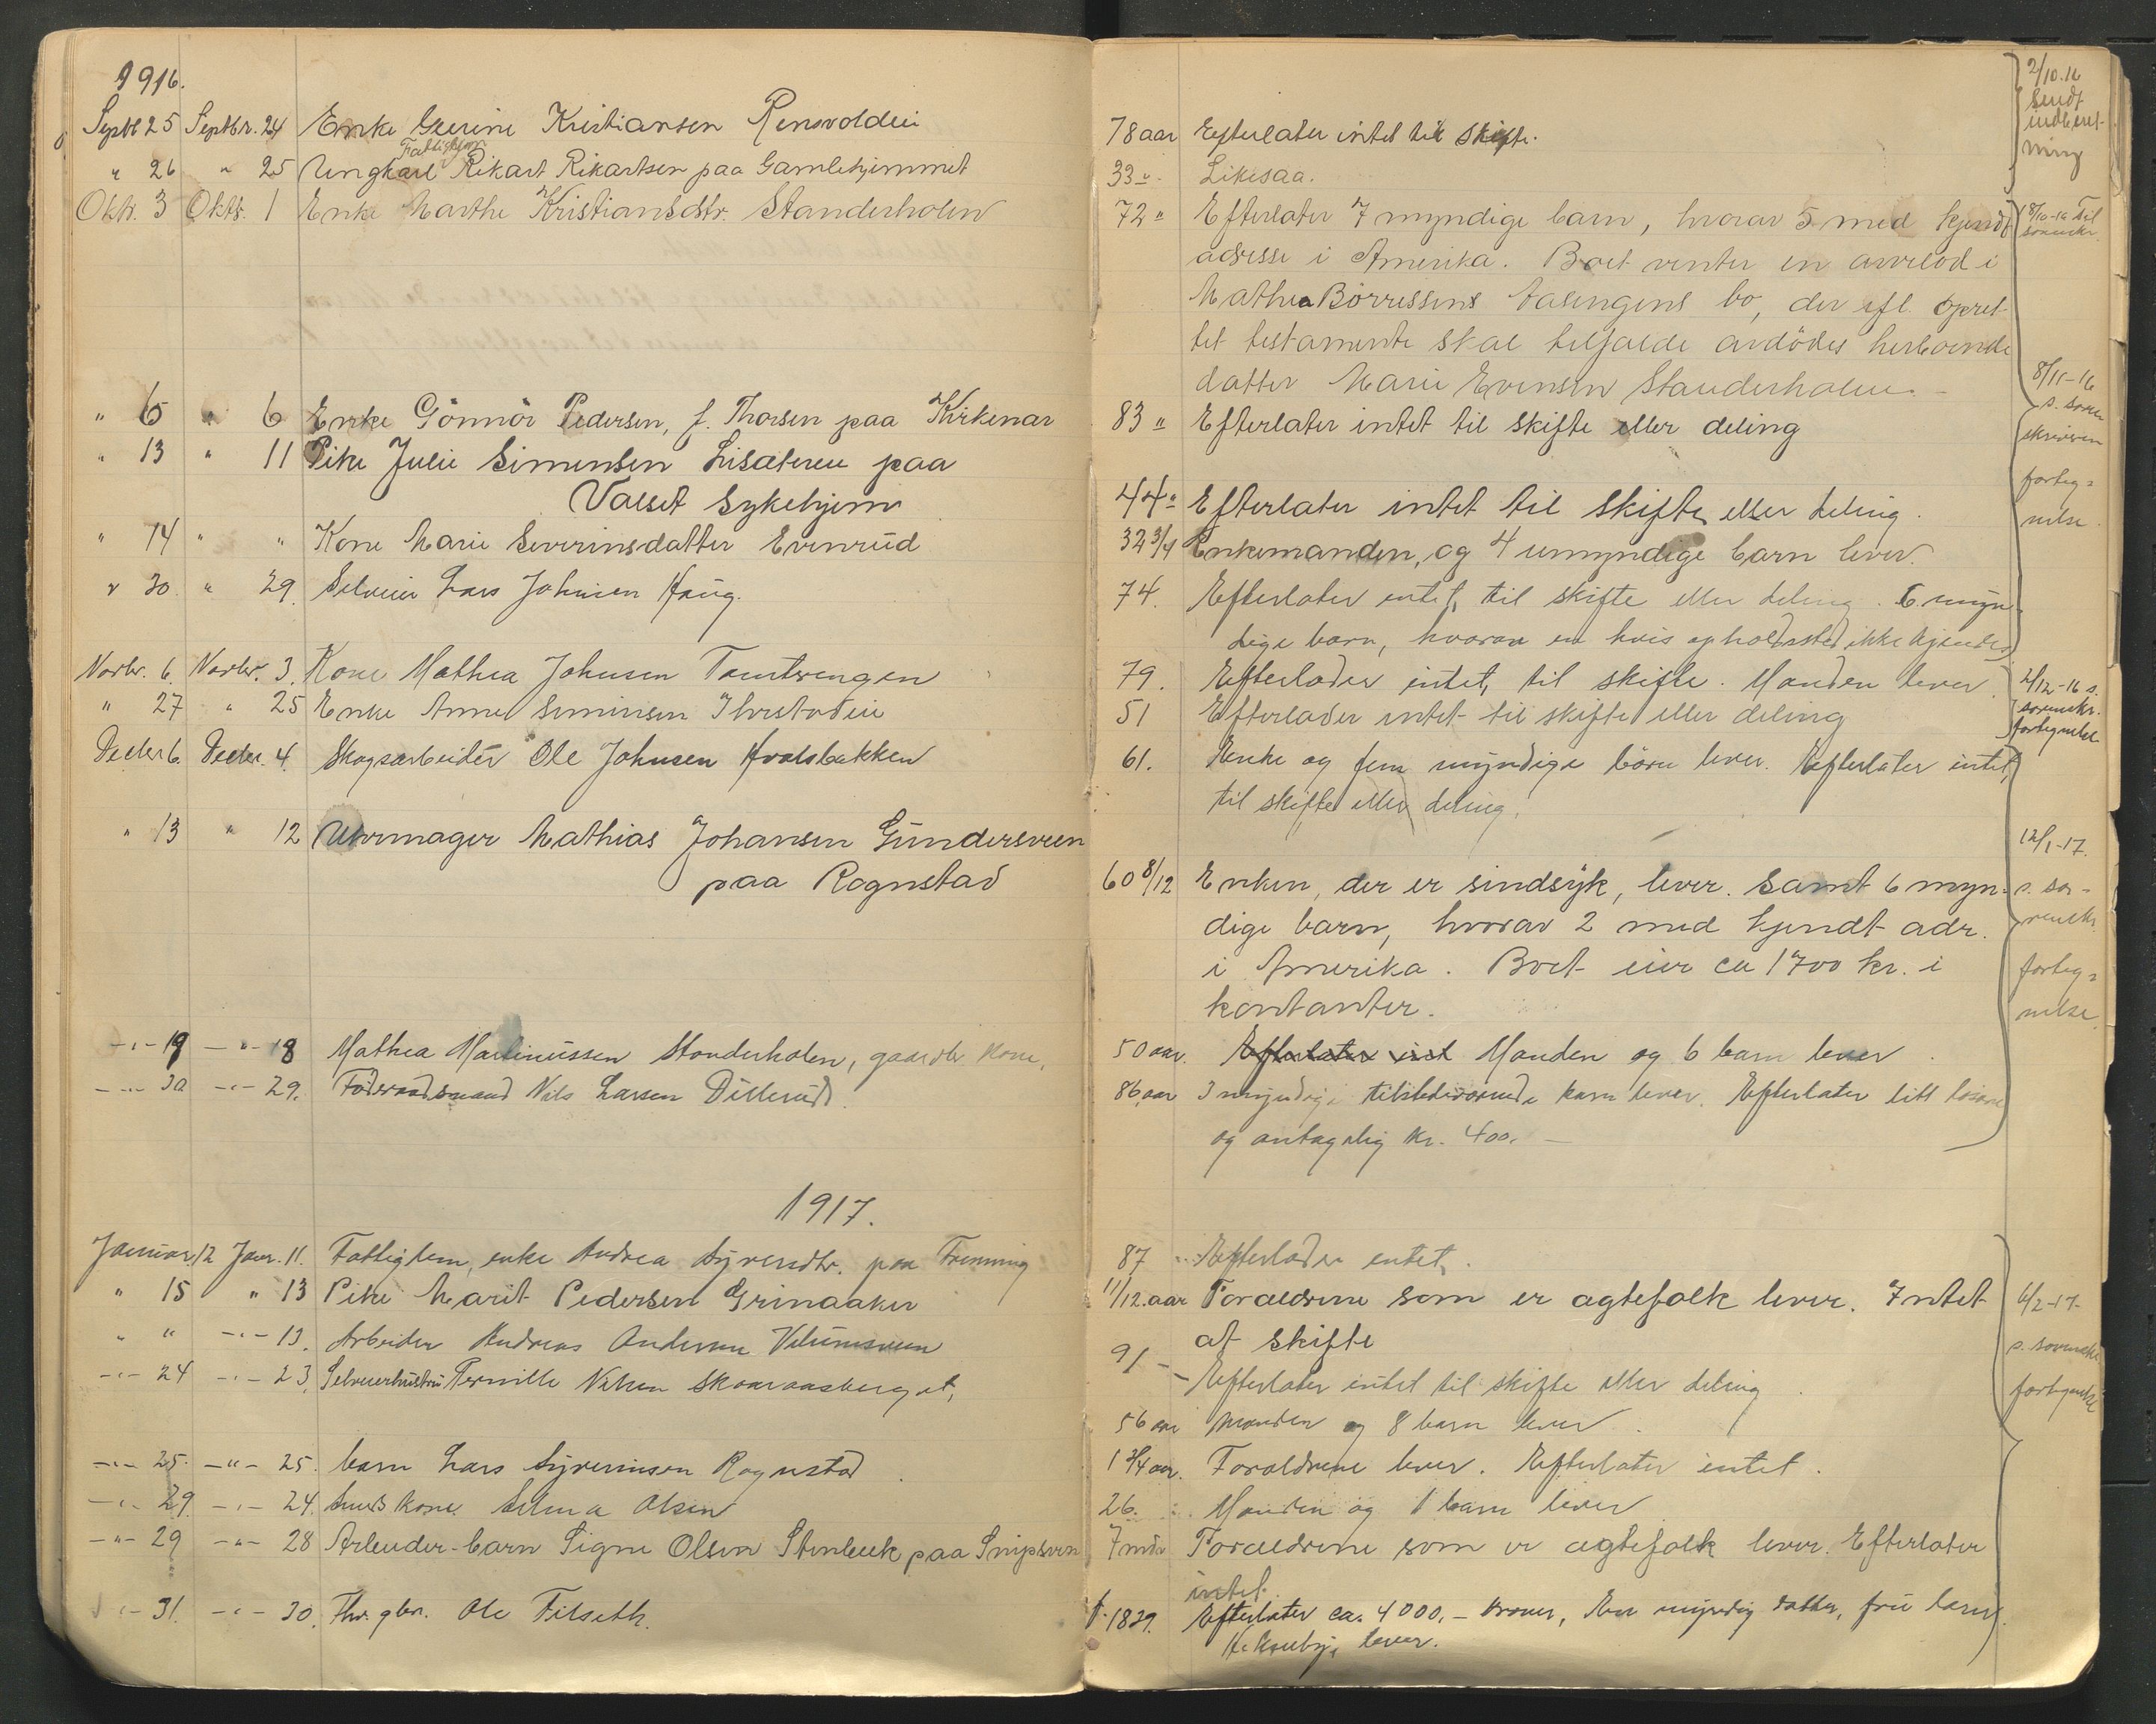 1916.
Septbr 25 Septbr. 24 Enke Gurine Kristiansen
78 aar Efterlater intet til skifte.
Fattiglem
" 26 " 25 Ungkarl Rikart Rikartsen paa Gamlehjemmet
33 " Likesaa.
Oktr. 3 Oktr. 1 Enke Marthe Kristiansdtr. Standerholen
72 " Efterlater 7 myndige barn, hvorav 5 med kjendt
adresse i Amerika. Boet venter en arvelod i
Mathea Börressens bo, der efl. opret-
tet testamente skal tilfalde avdödes herboende
datter Marie Evensen Standerholen. -
" 6 " 6 Enke Gönnör Pedersen, f. Thorsen paa Kirkenær
83 " Efterlater intet til skifte eller deling
" 13 " 11 Pike Julie Simensen paa
Valset Sykehjem
44 " Efterlater intet til skifte eller deling.
" 14 " " Kone Marie Severinsdatter Evenrud
32 3/4 Enkemanden, og 4 umyndige barn lever.
" 30. " 29. Selveier Lars Johnsen Haug.
74. Efterlater intet til skifte eller deling. 6 myn-
dige barn, hvorav en hvis opholdssted ikke kjendes
Novbr. 6. Novbr. 3. Kone Mathea Johnsen Tomtvengen
79. Efterlader intet til skifte. Manden lever.
" 27 " 25 Enke Anne Simensen
51 Efterlader intet til skifte eller deling
Decbr 6. Decbr. 4. Skogsarbeider Ole Johnsen Hvalsbakken
61. Enke og fem myndige börn lever. Efterlater intet
til skifte eller deling.
" 13 " 12 Uhrmager Mathias Johansen Gundersveen
paa Rognstad
60 8/12 Enken, der er sindsyk, lever. Samt 6 myn-
dige barn, hvorav 2 med kjendt adr.
i Amerika. Boet eier ca 1700 kr. i
kontanter.
-"- 19 -"- 18 Mathea Martinussen Standerholen, gaardbr. kone.
50 aar. Efterlater intet Manden og 6 barn lever.
-"- 30 -"- 29. Föderaadsmand Nils Larsen Dillerud.
86 aar 3 myndige tilstedeværende barn lever. Efterlater litt lösöre
og antagelig kr. 400. -
1917.
Januar 12 Janr. 11. Fattiglem, enke Andrea
87 Efterlader intet.
" 15 " 13 Pike Marit Pedersen Grinaaker
11/12 aar Forældrene som er agtefolk lever. Intet
at skifte
" " -"- 13. Arbeider Andreas Andersen
91 - Efterlater intet til skifte eller deling.
-"- 24 -"- 23. Selveierhustru Pernille Nilsen
56 aar Manden og 8 barn lever.
-"- 25. -"- 25. barn Lars Syverinsen Rognstad.
1 3/4 aar. Forældrene lever. Efterlater intet.
-"- 29. -"- 24. kone Selma Olsen
26. Manden og 1 barn lever
-"- 29 -"- 28 Arbeider-barn Signe Olsen Stenbæk paa Snipsven
7 mdr Forældrene som er agtefolk lever. Efterlater
intet.
-"- 31. -"- 30. Fhv. gbr. Ole Filseth.
f. 1829. Efterlater ca. 4000,- kroner, En myndig datter, fru
lever.
2/10.16
sendt
indberet-
ning
18/10-16 Til
sorenskr.
8/11-16
s. soren
skriveren
forteg-
nelse.
2/12-16 s.
sorenskr.
fortegnelse
12/1-17.
s. so-
renskr.
forteg-
nelse.
6/2-17-
s. sorenskr.
fortegnelse